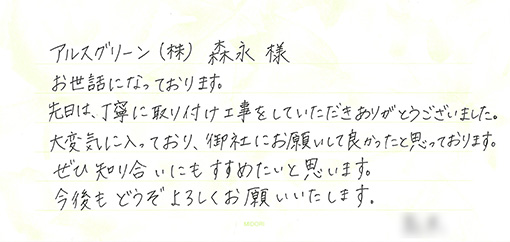 アルスグリーン(株) 森永 様
お世話になっております。
先日は、丁寧に取り付け工事をしていただきありがとうございました。
大変気に入っており、御社にお願いして良かったと思っております。
ぜひ知り合いにもすすめたいと思います。
今後もどうぞよろしくお願いいたします。
MIDORI